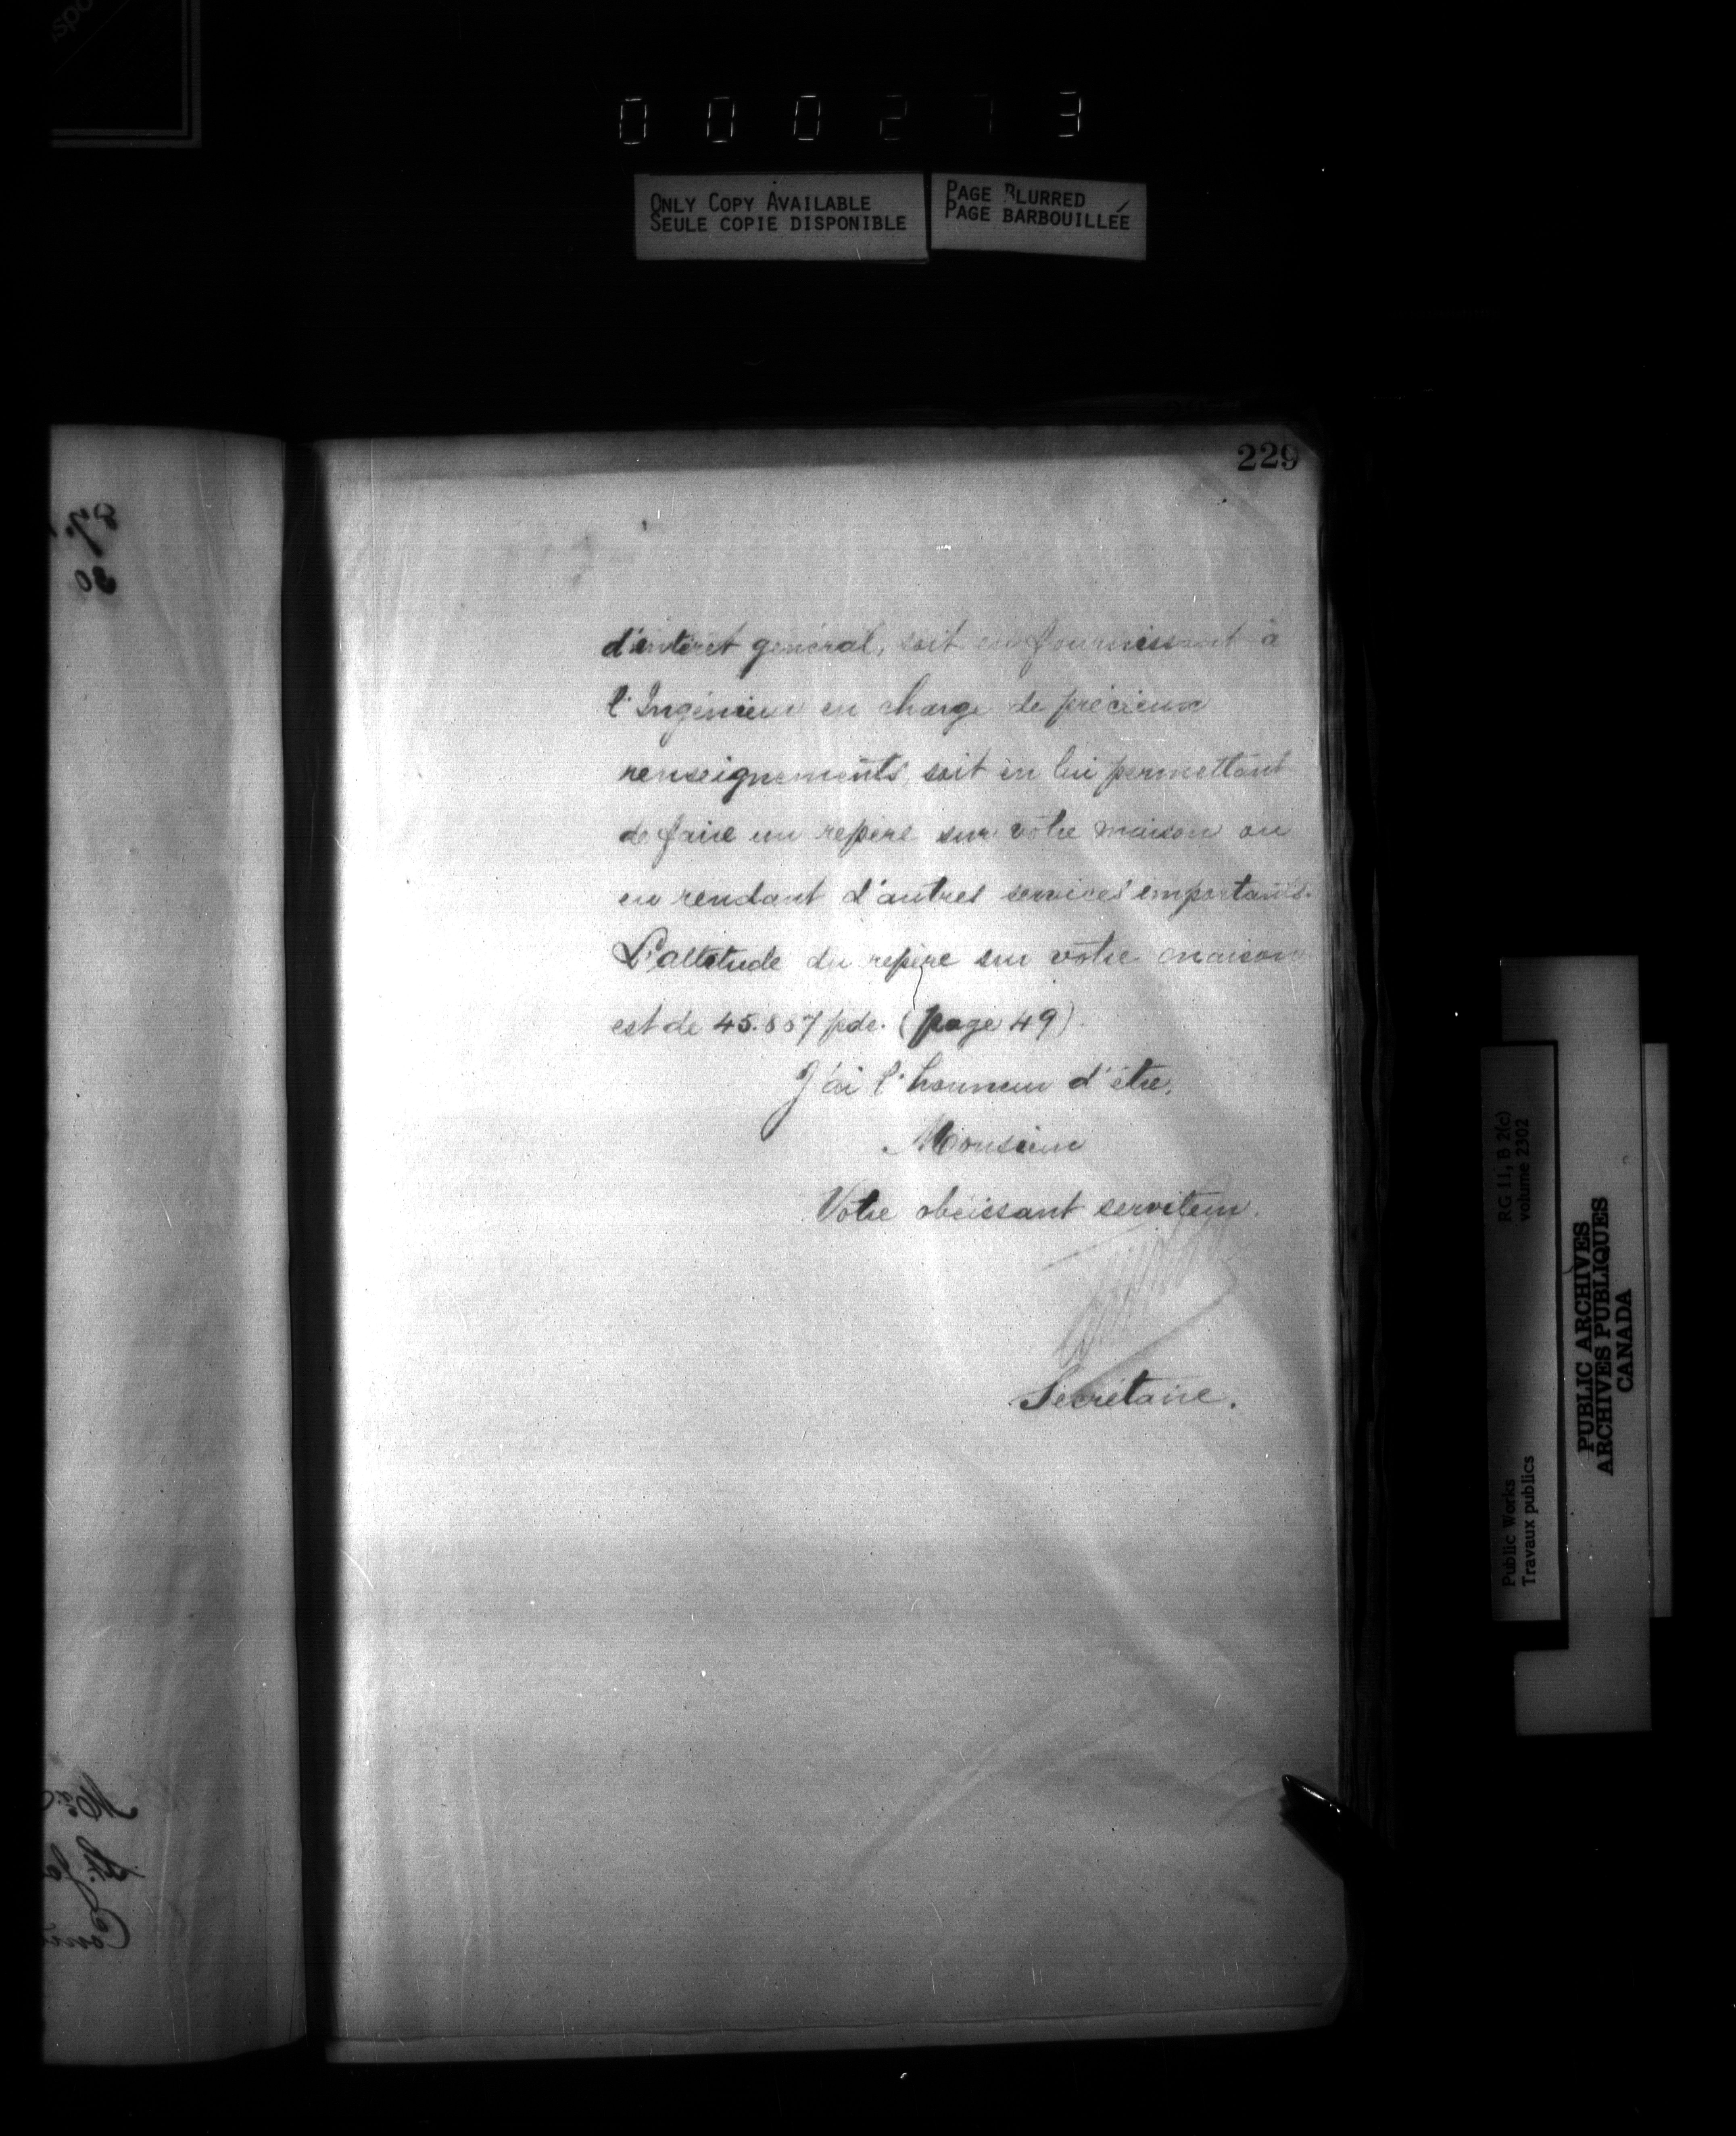 000273
ONLY COPY AVAILABLE
SEULE COPIE DISPONIBLE
PAGE BLURRED
PAGE BARBOUILLÉE
229
d'intérêt général, soit en fournissant à
l'Ingénieur en charge de précieux
renseignements, soit en lui permettant
de faire un repère sur votre maison ou
en rendant d'autres services importants.
L'altitude du repère sur votre maison
est de 45.857 pds. (page 49).
J'ai l'honneur d'être,
Monsieur
Votre obéissant serviteur.
Secrétaire.
RG 11, B 2(c)
volume 2302
Public Works
Travaux publics
PUBLIC ARCHIVES
ARCHIVES PUBLIQUES
CANADA